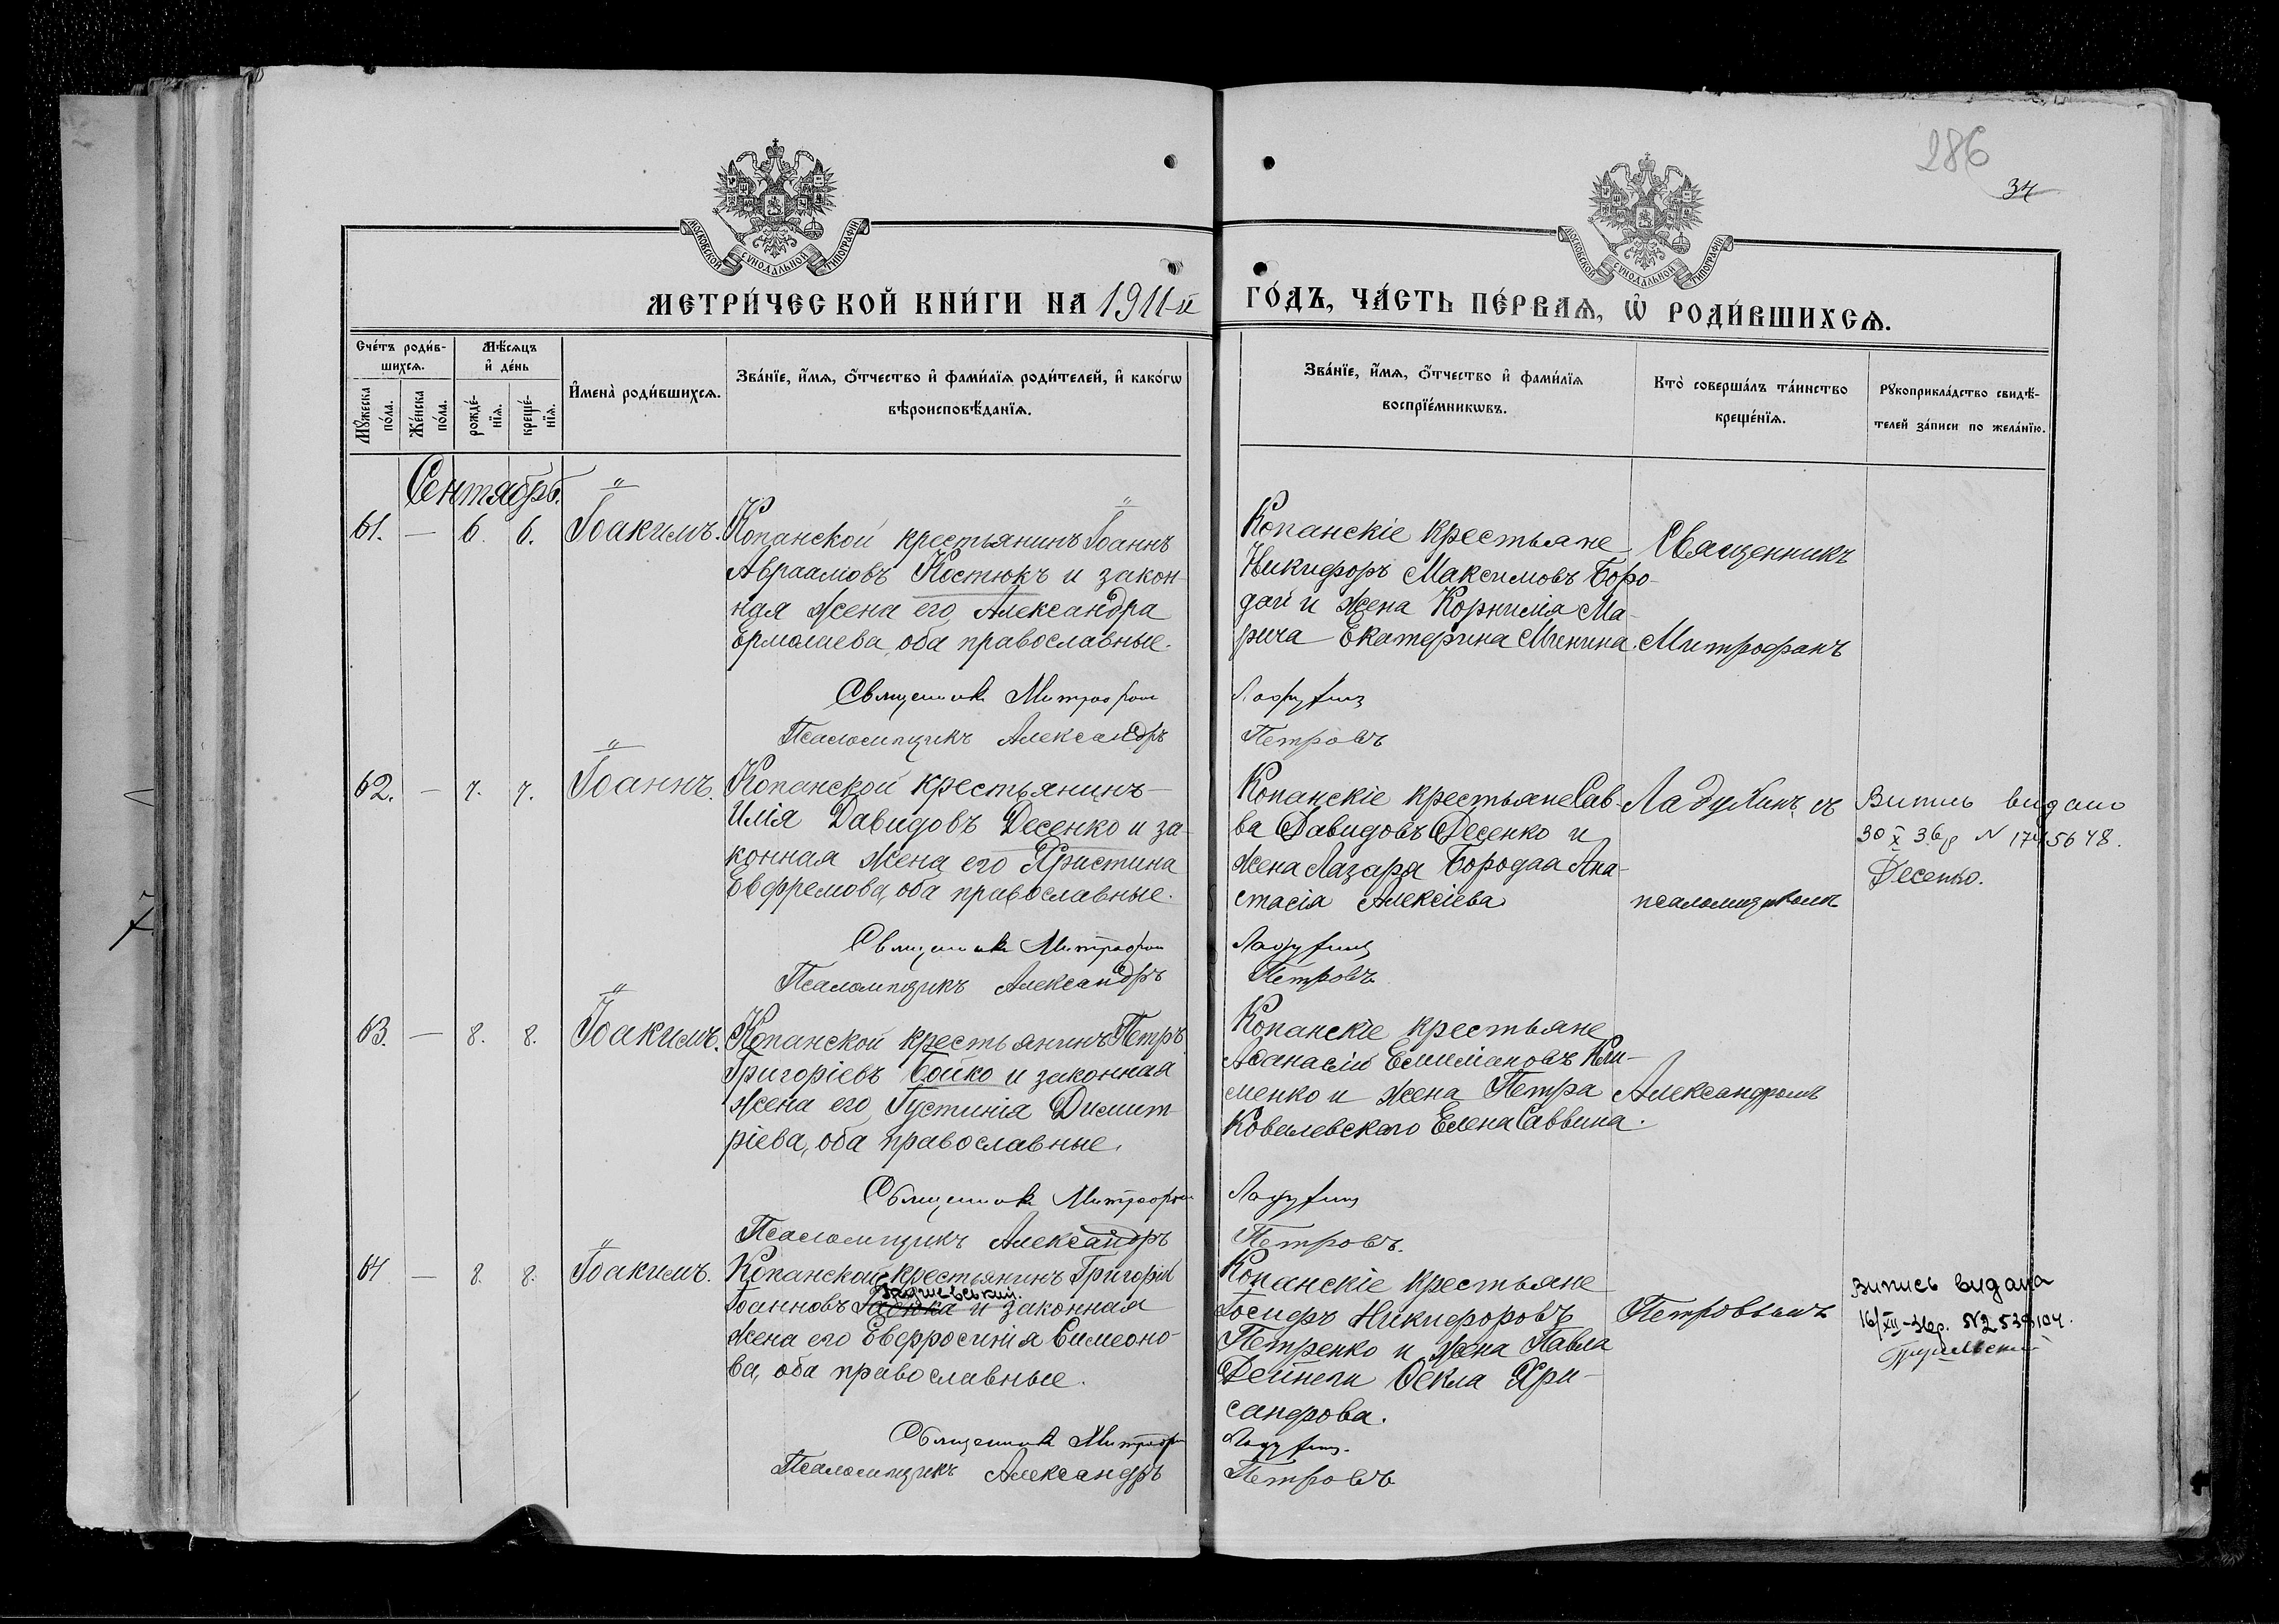 286
34
МОСКОВСКОЙ СѴНОДАЛЬНОЙ ТИПОГРАФІИ
МОСКОВСКОЙ СѴНОДАЛЬНОЙ ТИПОГРАФІИ
МЕТРИ́ЧЕСКОЙ КНИ́ГИ НА 1911-й
ГО́ДЪ, ЧА́СТЬ ПЕ́РВАѦ, Ѡ҆ РОДИ́ВШИХСѦ.
Сче́тъ роди́в-
шихсѧ.
Мѣ́сѧцъ
и҆ де́нь
Мꙋ́жеска
по́ла.
Же́нска
по́ла.
рожде́-
нїѧ.
креще́-
нїѧ.
И҆мена̀ роди́вшихсѧ.
Зва́нїе, и҆́мѧ, ѻ҆́тчество и҆ фами́лїѧ роди́телей, и҆ како́гѡ
вѣроисповѣ́данїѧ.
Зва́нїе, и҆́мѧ, ѻ҆́тчество и҆ фами́лїѧ
воспрїе́мникѡвъ.
Кто̀ соверша́лъ та́инство
креще́нїѧ.
Рꙋкоприкла́дство свидѣ́-
телей за́писи по жела́нїю.
Сентябрь.
61. — 6. 6. Іоакимъ.
Копанской крестьянинъ Іоаннъ
Авраамовъ Костюкъ и закон-
ная жена его, Александра
Ермолаева, оба православные.
Священникъ Митрофанъ
Псаломщикъ Александръ
Копанскіе крестьяне
Никифоръ Максимовъ Боро-
дай и жена Корнилія Ма-
рича Екатерина Минина.
Ладухинъ
Петровъ
Священникъ
Митрофанъ
62. — 7. 7. Іоаннъ.
Копанской крестьянинъ
Илія Давидовъ Десенко и за-
конная жена его Христина
Евфремова, оба православные.
Священникъ Митрофанъ
Псаломщикъ Александръ
Копанскіе крестьяне Сав-
ва Давидовъ Десенко и
жена Лазаря Бородая Ана-
стасія Алексіева
Ладухинъ
Петровъ
Ладухинъ съ
псаломщикомъ
Витись видано
30 X 36р N 1745648.
Десенко.
63. — 8. 8. Іоакимъ.
Копанской крестьянинъ Петръ
Григоріевъ Бойко и законная
жена его, Іустинія Димит-
ріева, оба православные.
Священникъ Митрофанъ
Псаломщикъ Александръ
Копанскіе крестьяне
Аѳанасій Емиліановъ Кли-
менко и жена Петра
Ковалевскаго Елена Саввина.
Ладухинъ
Петровъ.
Александромъ
64 — 8. 8. Іоакимъ.
Копанской крестьянинъ Григорій
Іоанновъ и законная
жена его Евфросинія Симеоно-
ва, оба православные.
Священникъ Митрофанъ
Псаломщикъ Александръ
Копанскіе крестьяне
Іосифъ Никифоровъ
Петренко и жена Павла
Дейнеги Ѳекла Хри-
санфова.
Ладухинъ.
Петровъ
Петровымъ
Витись видана
16/XII-36р. N2539104.